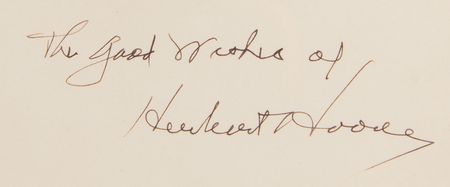 The Good Wishes of
Herbert Hoover